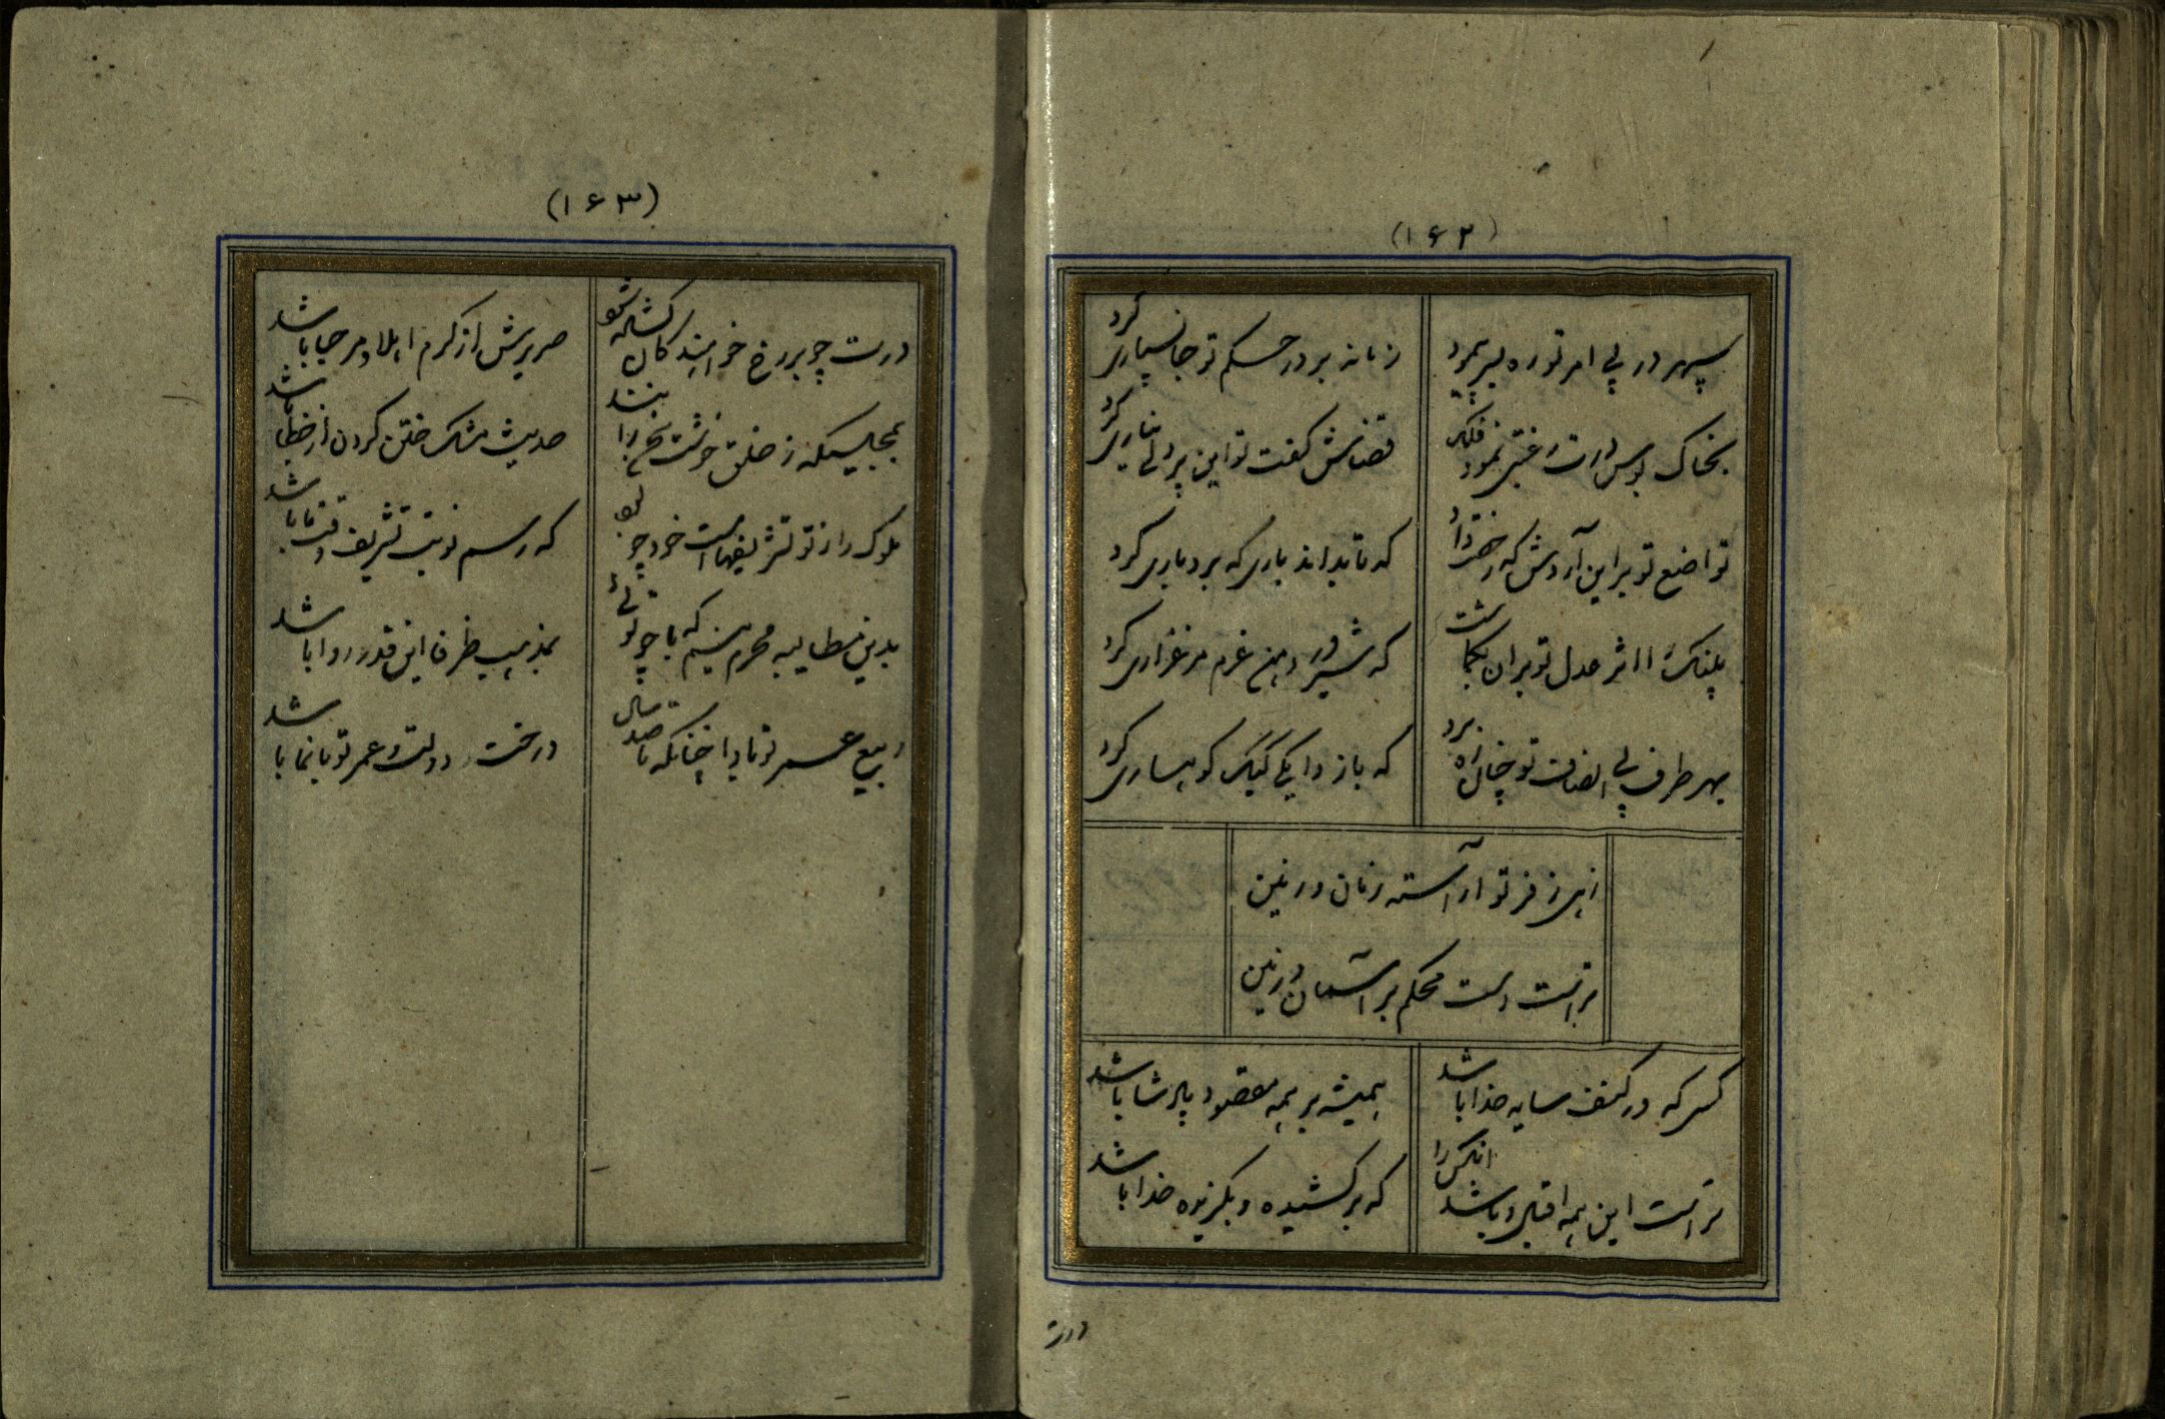 (۱۶۲)
سپهر در پی امر تو ره بسر پیمود
زمانه بر در حکم تو جانسپاری کرد
بخاک بوس درت رغبتی نمود فلک
قضاش گفت تو این پردلی نیاری کرد
تواضع تو براین آردش که
که تا بداند باری که بردباری کرد
پلنگ را اثر عدل تو بران بگماشت
که شیر در مرغزاری کرد
بهر طرف پی انصاف تو چنان راه برد
که باز دایگی کبک کوهساری کرد
زهی ز فر تو آراسته زمان و زمین
تراست دست محکم بر آسمان و زمین
کسی که در کنف سایه خدا باشد
همیشه بر همه مقصود پادشا باشد
تراست این همه اقبال و باشد آنکس را
که برکشیده و بگزیده خدا باشد
درت
(۱۶۳)
درت چو بر رخ خواهندگان گشاده شود
صریرش از کرم اهلا و مرحبا باشد
بمجلسیکه ز خلق خوشت
حدیث مشک ختن کردن از خطا باشد
ملوک را ز تو تشریفهاست خود چو
که رسم نوبت تشریف وقت ما باشد
بدین مطالبه مجرم نیم که با چو توئی
بمذهب ظرفا این قدر روا باشد
ربیع عمر تو بادا چنانکه تا صد سال
درخت دولت و عمر تو بانما باشد